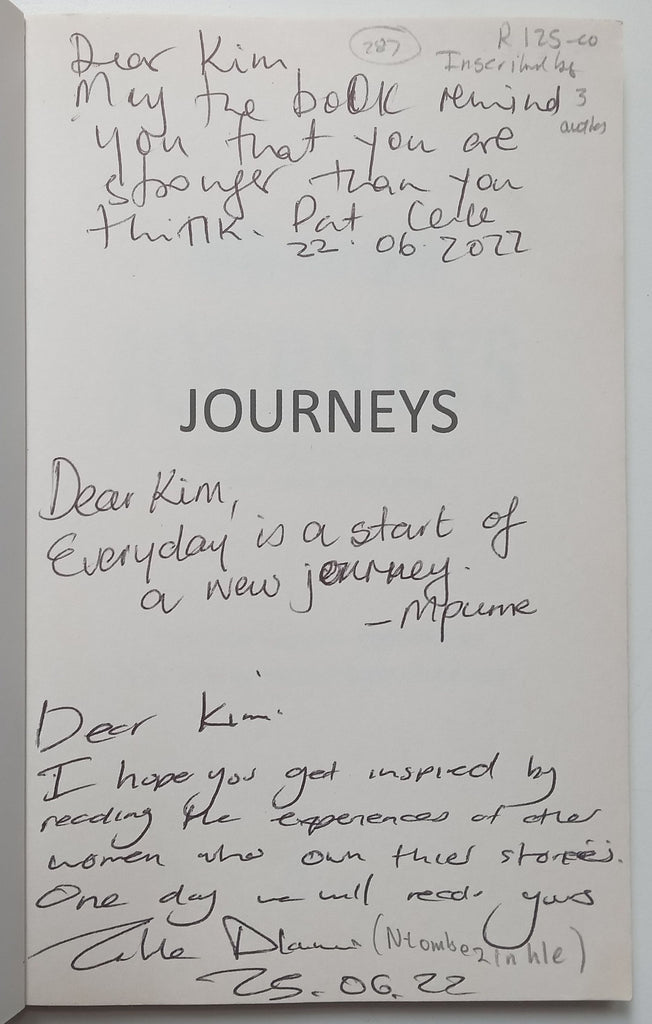 Dear Kim,
287
R125-00
Inscribed by
3
May the book remind
you that you are
stronger than you
think. Pat Cele
22.06.2022
JOURNEYS
Dear Kim,
Everyday is a start of
a new journey.
- Mpume
Dear Kim.
I hope you get inspired by
reading the experiences of other
women who own thier stories.
One day we will read yours
Dlamini (Ntombezinhle)
25.06.22